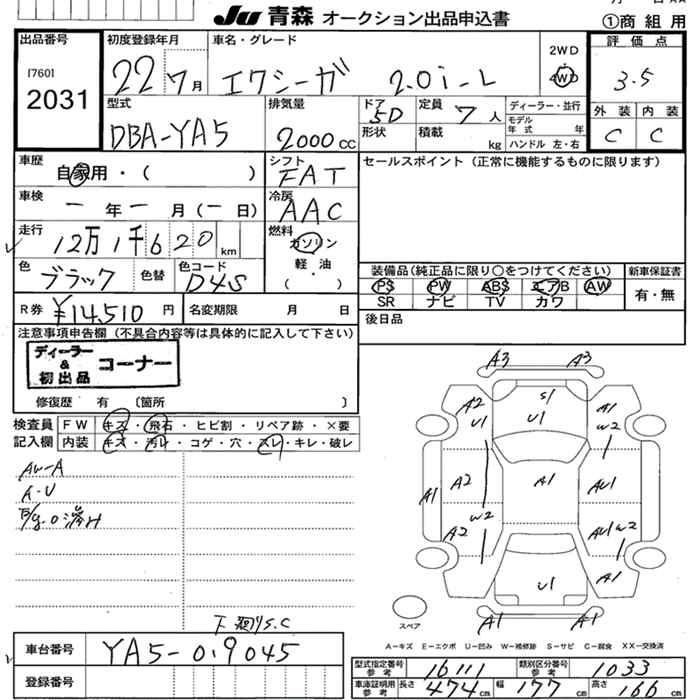 JU 青森 オークション出品申込書
①商組用
出品番号
[760]
2031
初度登録年月
22 7月
車名・グレード
エクシーガ 2.0i-L
2WD
4WD
評価点
3.5
外装 内装
C C
型式
DBA-YA5
排気量
2000 CC
ドア
5D
形状
定員
7人
積載
kg
ディーラー・並行
モデル
年式 年
ハンドル 左・右
車歴
自家用・( )
シフト
FAT
セールスポイント(正常に機能するものに限ります)
車検
一年一月(一日)
冷房
AAC
走行
12万1千620km
燃料
ガソリン
軽・油
( )
色
ブラック
色替
色コード
D4S
装備品(純品正に限り○をつけてください)
PS PW ABS エアB AW
SR ナビ TV カワ
新車保証書
有・無
R券 ¥14,510円
名変期限 月 日
後日品
注意事項申告欄(不具合内容等は具体的に記入して下さい)
ディーラー
&
初出品
コーナー
修復歴 有 〔箇所 〕
検査員
記入欄
FW キズ・飛石・ヒビ割・リペア跡・×要
内装 キズ・汚レ・コゲ・穴・スレ・キレ・破レ
AW-A
A・U
A3 A3
A2 U1
S1
U1
A1 W2
A1
A2
A1
AU1
A1
W2
A2
AU1 W2
U1
A1
A1 A1
スペア
A-キズ E-エクボ U-凹み W-補修跡 S-サビ C-腐食 XX-交換済
下廻りS.C
車台番号 YA5-019045
登録番号
型式指定番号
参考
16111
類別区分番号
参考
1033
車庫証明用
参考
長さ 474cm 幅 177cm 高さ 166cm